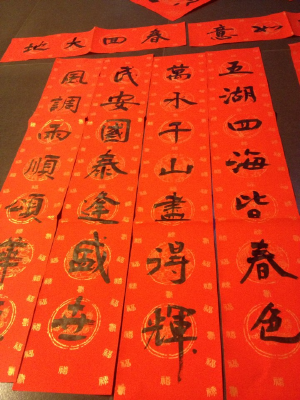 如意
春回大地
五湖四海皆春色
萬水千山盡得輝
民安國泰逢盛世
風調雨順頌華